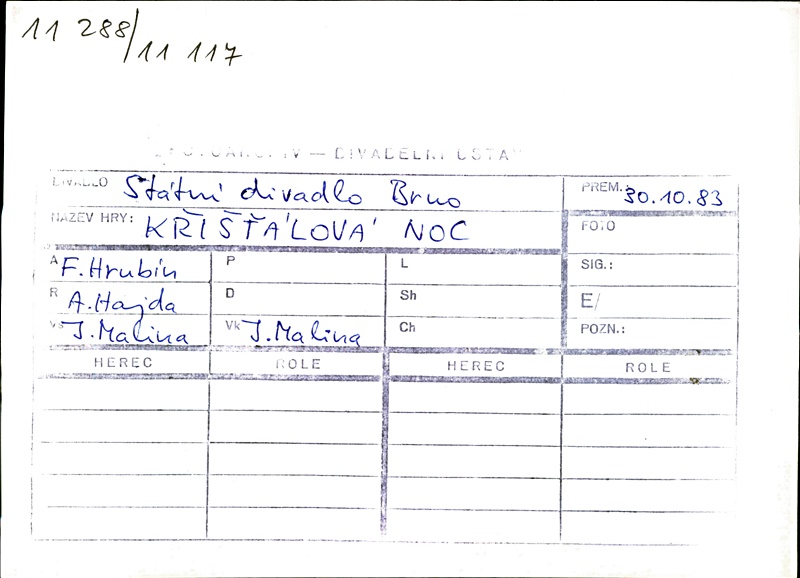 11 288/11 117
FOTOARCHIV — DIVADELNÍ ÚSTAV
DIVADLO Státní divadlo Brno PREM.: 30.10.83
NÁZEV HRY: KŘIŠŤÁLOVÁ NOC FOTO
A F. Hrubín P L SIG.:
R A. Hajda D Sh E/
Vs J. Malina Vk J. Malina Ch POZN.:
HEREC ROLE HEREC ROLE